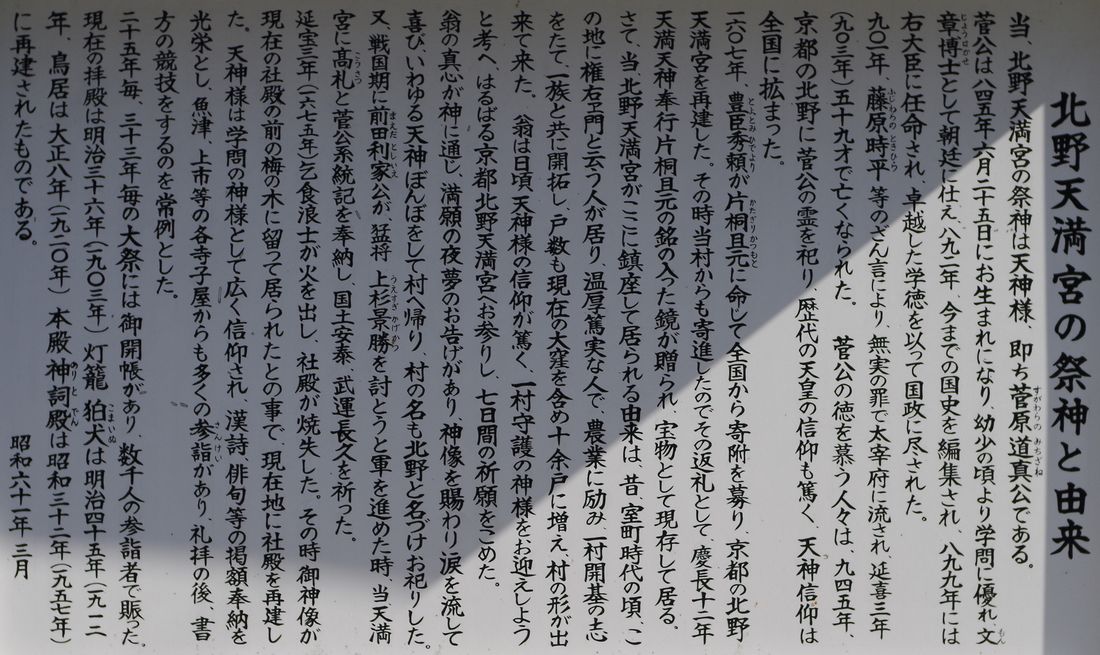 北野天満宮の祭神と由来
当、北野天満宮の祭神は天神様、即ち菅原道真公である。
菅公は八四五年六月二十五日にお生まれになり、幼少の頃より学問に優れ、文
章博士として朝廷に仕え、八九二年、今までの国史を編集され、八九九年には
右大臣に任命され、卓越した学徳を以って国政に尽された。
九〇一年、藤原時平等のざん言により、無実の罪で太宰府に流され、延喜三年
（九〇三年）五十九才で亡くなられた。　菅公の徳を慕う人々は、九四五年、
京都の北野に菅公の霊を祀り、歴代の天皇の信仰も篤く、天神信仰は
全国に拡まった。
一六〇七年、豊臣秀頼が片桐且元に命じて全国から寄附を募り、京都の北野
天満宮を再建した。その時当村からも寄進したのでその返礼として、慶長十二年
天満天神奉行片桐且元の銘の入った鏡が贈られ、宝物として現存して居る。
さて、当、北野天満宮がここに鎮座して居られる由来は、昔、室町時代の頃、こ
の地に権右ヱ門と云う人が居り、温厚篤実な人で、農業に励み、一村開基の志
をたて、一族と共に開拓し、戸数も現在の大窪を含め十余戸に増え、村の形が出
来て来た。　翁は日頃、天神様の信仰が篤く、一村守護の神様をお迎えしよう
と考へ、はるばる京都北野天満宮へお参りし、七日間の祈願をこめた。
翁の真心が神に通じ、満願の夜夢のお告げがあり、神像を賜わり涙を流して
喜び、いわゆる天神ぼんぼをして村へ帰り、村の名も北野と名づけお祀りした。
又、戦国期に前田利家公が、猛将　上杉景勝を討とうと軍を進めた時、当天満
宮に高札と菅公系統記を奉納し、国土安泰、武運長久を祈った。
延宝三年（一六七五年）乞食浪士が火を出し、社殿が焼失した。その時御神像が
現在の社殿の前の梅の木に留って居られたとの事で、現在地に社殿を再建し
た。天神様は学問の神様として広く信仰され、漢詩、俳句等の掲額奉納を
光栄とし、魚津、上市等の各寺子屋からも多くの参詣があり、礼拝の後、書
方の競技をするのを常例とした。
二十五年毎、三十三年毎の大祭には御開帳があり、数千人の参詣者で賑った。
現在の拝殿は明治三十六年（一九〇三年）灯籠　狛犬は明治四十五年（一九一二
年、鳥居は大正八年（一九二〇年）　本殿　神詞殿は昭和三十二年（一九五七年）
に再建されたものである。
昭和六十一年三月